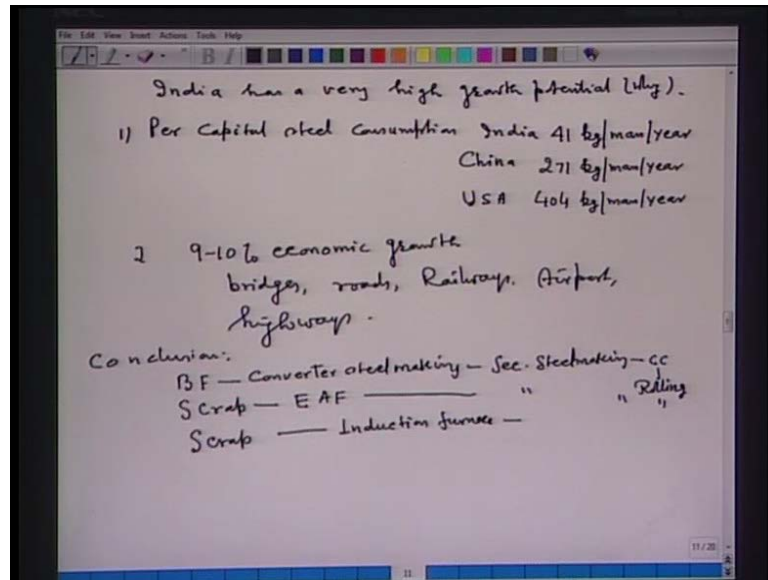 File Edit View Insert Actions Tools Help
India has a very high growth potential (why).
1) Per Capital steel Consumption India 41 kg/man/year
China 271 kg/man/year
USA 404 kg/man/year
2 9-10% economic growth
bridges, roads, Railways. Airport,
highways.
Conclusion:
BF — Converter steelmaking — Sec. Steelmaking — CC
Scrap — EAF ——— " " Rolling
Scrap — Induction furnace — "
11/20
11